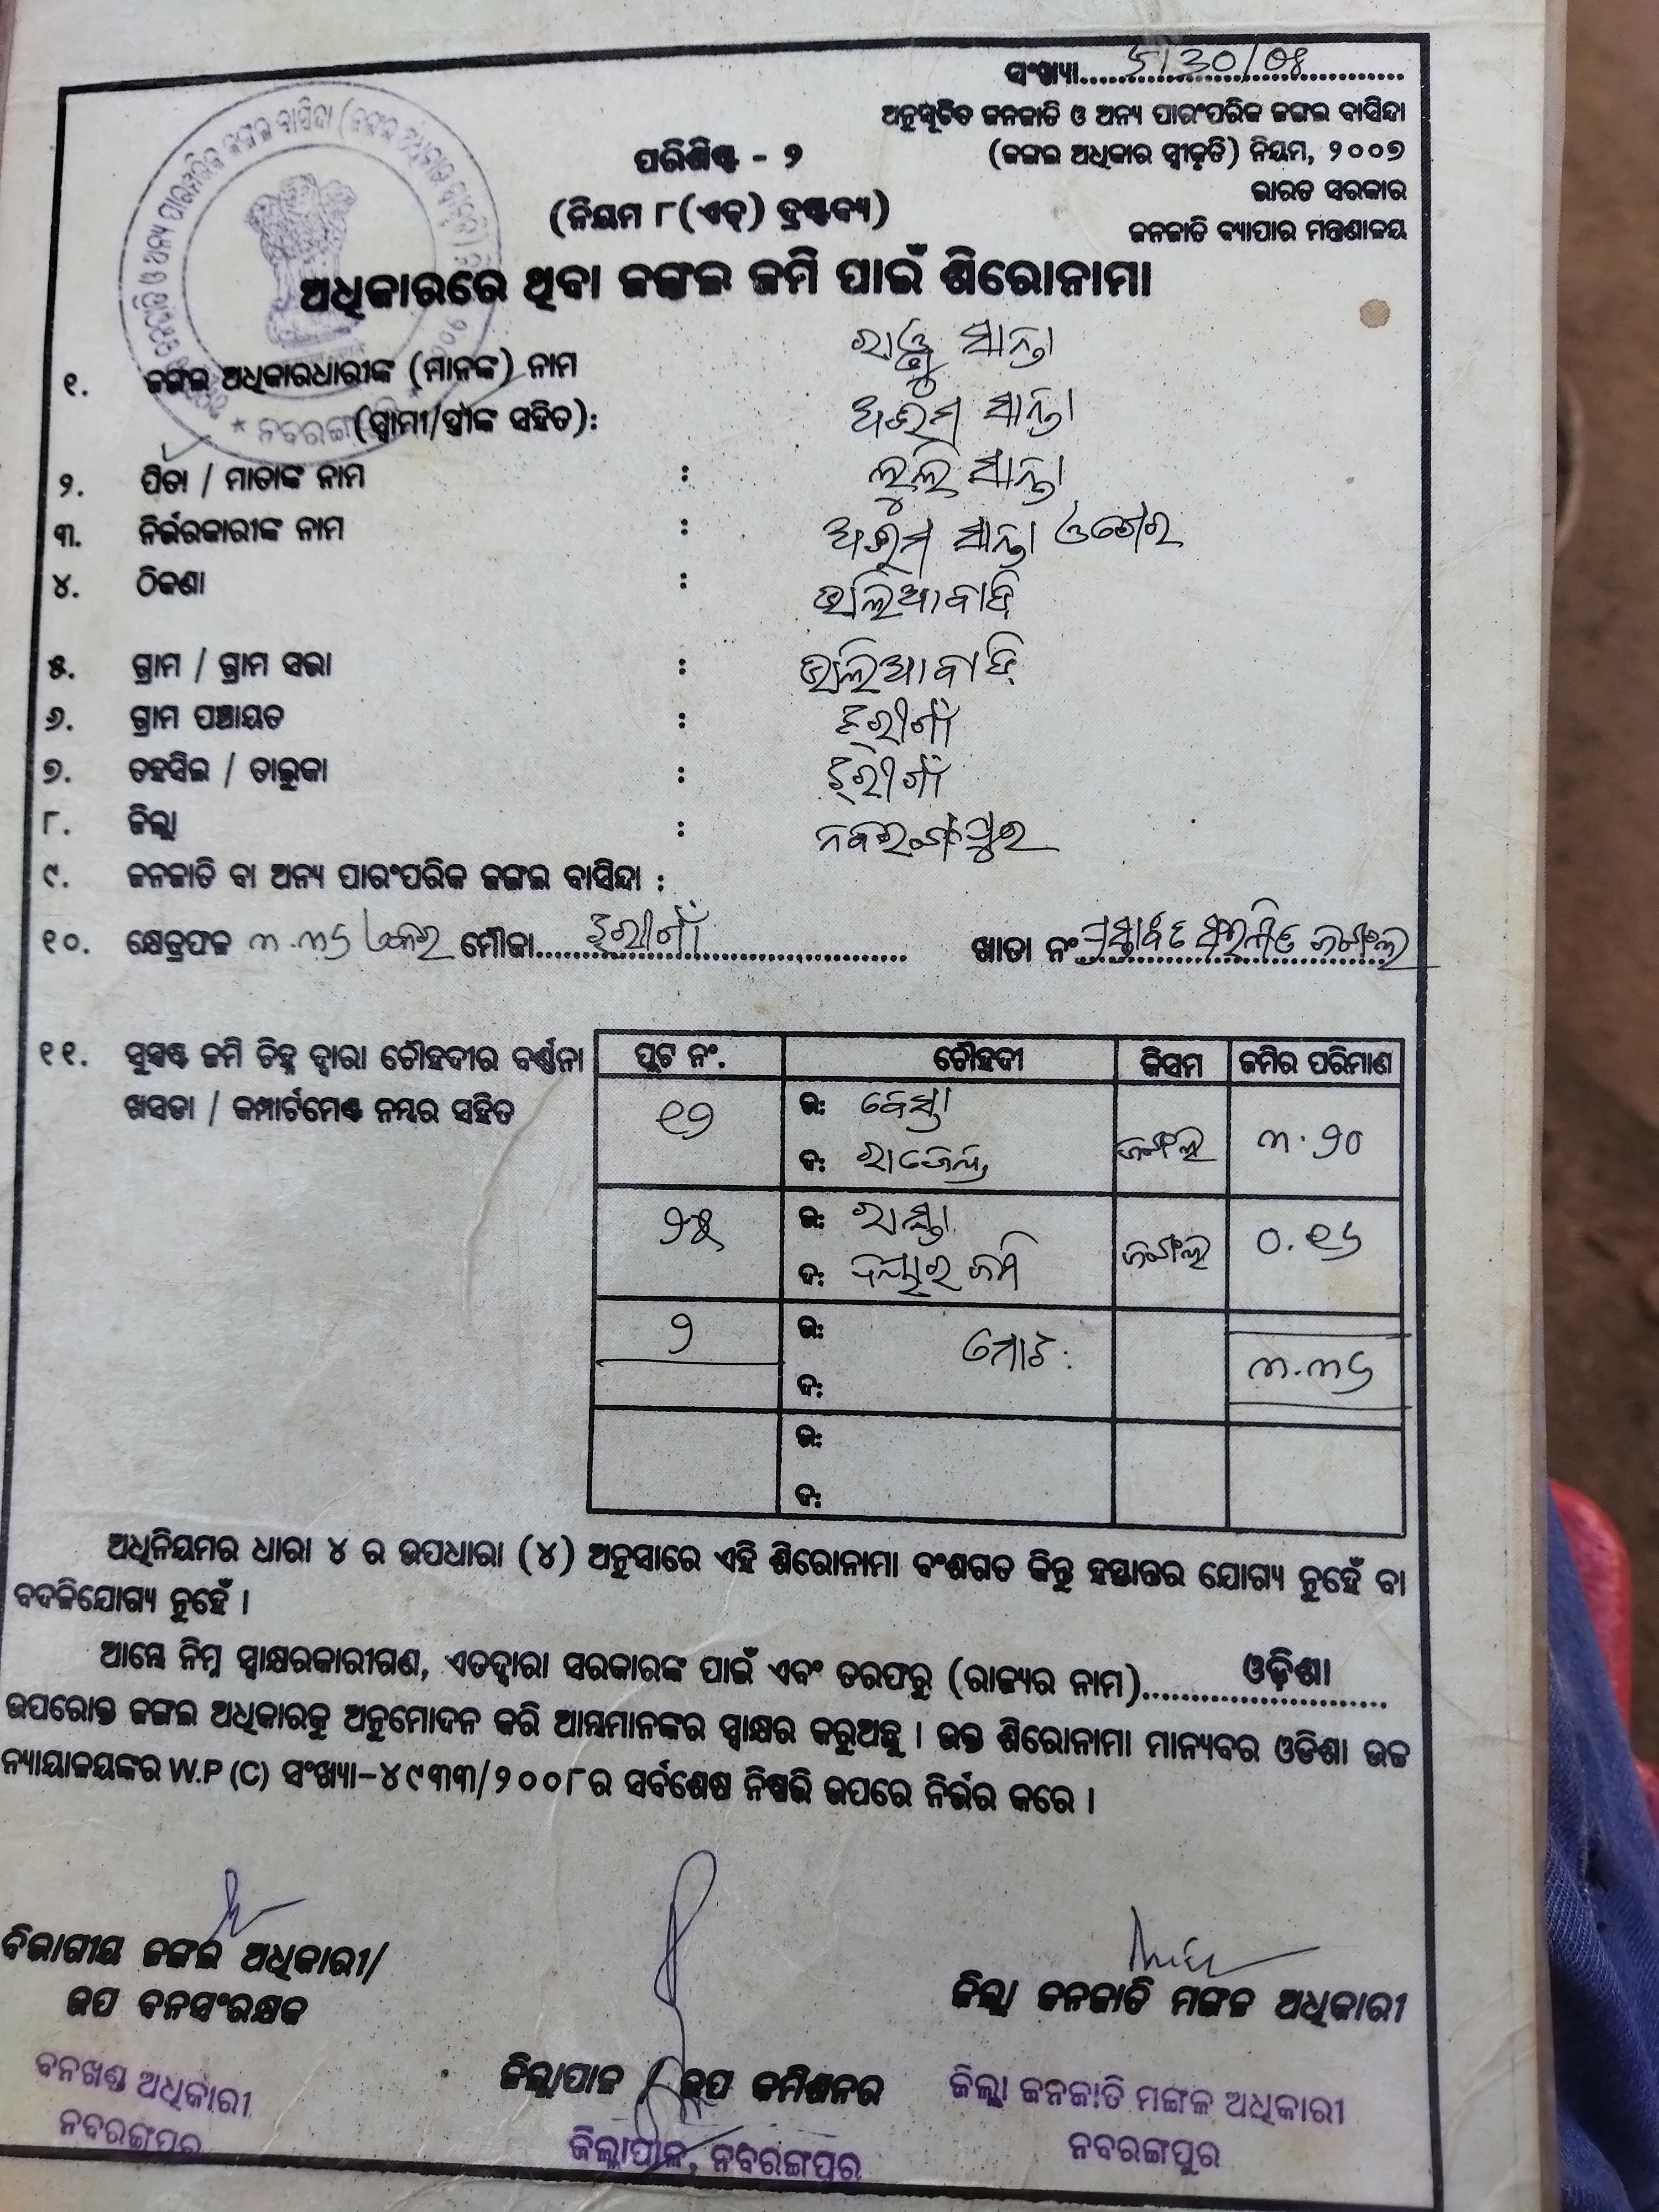 ସଂଖ୍ୟା.....5130/08
ଅନୁସୂଚିତ ଜନଜାତି ଓ ଅନ୍ୟ ପାରଂପରିକ ଜଙ୍ଗଲ ବାସିନ୍ଦା
(ଜଙ୍ଗଲ ଅଧିକାର ସ୍ୱୀକୃତି) ନିୟମ, ୨୦୦୭
ଭାରତ ସରକାର
ଜନଜାତି ବ୍ୟାପାର ମନ୍ତ୍ରଣାଳୟ
ପରିଶିଷ୍ଟ - ୨
(ନିୟମ ୮(ଏଚ୍) ଦ୍ରଷ୍ଟବ୍ୟ)
ଅଧିକାରରେ ଥିବା ଜଙ୍ଗଲ ଜମି ପାଇଁ ଶିରୋନାମା
୧. ଜଙ୍ଗଲ ଅଧିକାରଧାରୀଙ୍କ (ମାନଙ୍କ) ନାମ ସାନ୍ତା
(ସ୍ୱାମୀ/ସ୍ତ୍ରୀଙ୍କ ସହିତ): ସାନ୍ତା
୨. ପିତା / ମାତାଙ୍କ ନାମ : ଲୁଲି ସାନ୍ତା
୩. ନିର୍ଭରକାରୀଙ୍କ ନାମ : ସାନ୍ତା
୪. ଠିକଣା : ଭାଲିଆବାହି
୫. ଗ୍ରାମ / ଗ୍ରାମ ସଭା : ଭାଲିଆବାହି
୬. ଗ୍ରାମ ପଞ୍ଚାୟତ : ଝରୀଗାଁ
୭. ତହସିଲ / ତାଲୁକା : ଝରୀଗାଁ
୮. ଜିଲ୍ଲା : ନବରଙ୍ଗପୁର
୯. ଜନଜାତି ବା ଅନ୍ୟ ପାରଂପରିକ ଜଙ୍ଗଲ ବାସିନ୍ଦା :
୧୦. କ୍ଷେତ୍ରଫଳ ୩.୩୬ ଏକର ମୌଜା.....ଝରୀଗାଁ..... ଖାତା ନଂ ପ୍ରସ୍ତାବିତ ସଂରକ୍ଷିତ ଜଙ୍ଗଲ
୧୧. ସୁସ୍ପଷ୍ଟ ଜମି ଚିହ୍ନ ଦ୍ୱାରା ଚୌହଦୀର ବର୍ଣ୍ଣନା
ଖସଡା / କମ୍ପାର୍ଟମେଣ୍ଟ ନମ୍ବର ସହିତ
ପ୍ଲଟ ନଂ. ଚୌହଦୀ କିସମ ଜମିର ପରିମାଣ
୧୨ ଉ: ଦ: ରାଜେନ୍ଦ୍ର ଜଙ୍ଗଲ ୩.୨୦
୨୫ ଉ: ରାସ୍ତା ଦ: ଜମି ଜଙ୍ଗଲ ୦.୧୬
୨ ଉ: ଦ: ମୋଟ: ୩.୩୬
ଉ:
ଦ:
ଅଧିନିୟମର ଧାରା ୪ ର ଉପଧାରା (୪) ଅନୁସାରେ ଏହି ଶିରୋନାମା ବଂଶଗତ କିନ୍ତୁ ହସ୍ତାନ୍ତର ଯୋଗ୍ୟ ନୁହେଁ ବା
ବଦଳିଯୋଗ୍ୟ ନୁହେଁ ।
ଆମ୍ଭେ ନିମ୍ନ ସ୍ୱାକ୍ଷରକାରୀଗଣ, ଏତଦ୍ୱାରା ସରକାରଙ୍କ ପାଇଁ ଏବଂ ତରଫରୁ (ରାଜ୍ୟର ନାମ).....ଓଡ଼ିଶା.....
ଉପରୋକ୍ତ ଜଙ୍ଗଲ ଅଧିକାରକୁ ଅନୁମୋଦନ କରି ଆମ୍ଭମାନଙ୍କର ସ୍ୱାକ୍ଷର କରୁଅଛୁ । ଉକ୍ତ ଶିରୋନାମା ମାନ୍ୟବର ଓଡିଶା ଉଚ୍ଚ
ନ୍ୟାୟାଳୟଙ୍କର W.P (C) ସଂଖ୍ୟା-୪୯୩୩/୨୦୦୮ର ସର୍ବଶେଷ ନିଷ୍ପତ୍ତି ଉପରେ ନିର୍ଭର କରେ ।
ବିଭାଗୀୟ ଜଙ୍ଗଲ ଅଧିକାରୀ/
ଉପ ବନସଂରକ୍ଷକ
ବନଖଣ୍ଡ ଅଧିକାରୀ
ନବରଙ୍ଗପୁର
ଜିଲ୍ଲାପାଳ / ଉପ କମିଶନର
ଜିଲ୍ଲାପାଳ, ନବରଙ୍ଗପୁର
ଜିଲ୍ଲା ଜନଜାତି ମଙ୍ଗଳ ଅଧିକାରୀ
ଜିଲ୍ଲା ଜନଜାତି ମଙ୍ଗଳ ଅଧିକାରୀ
ନବରଙ୍ଗପୁର